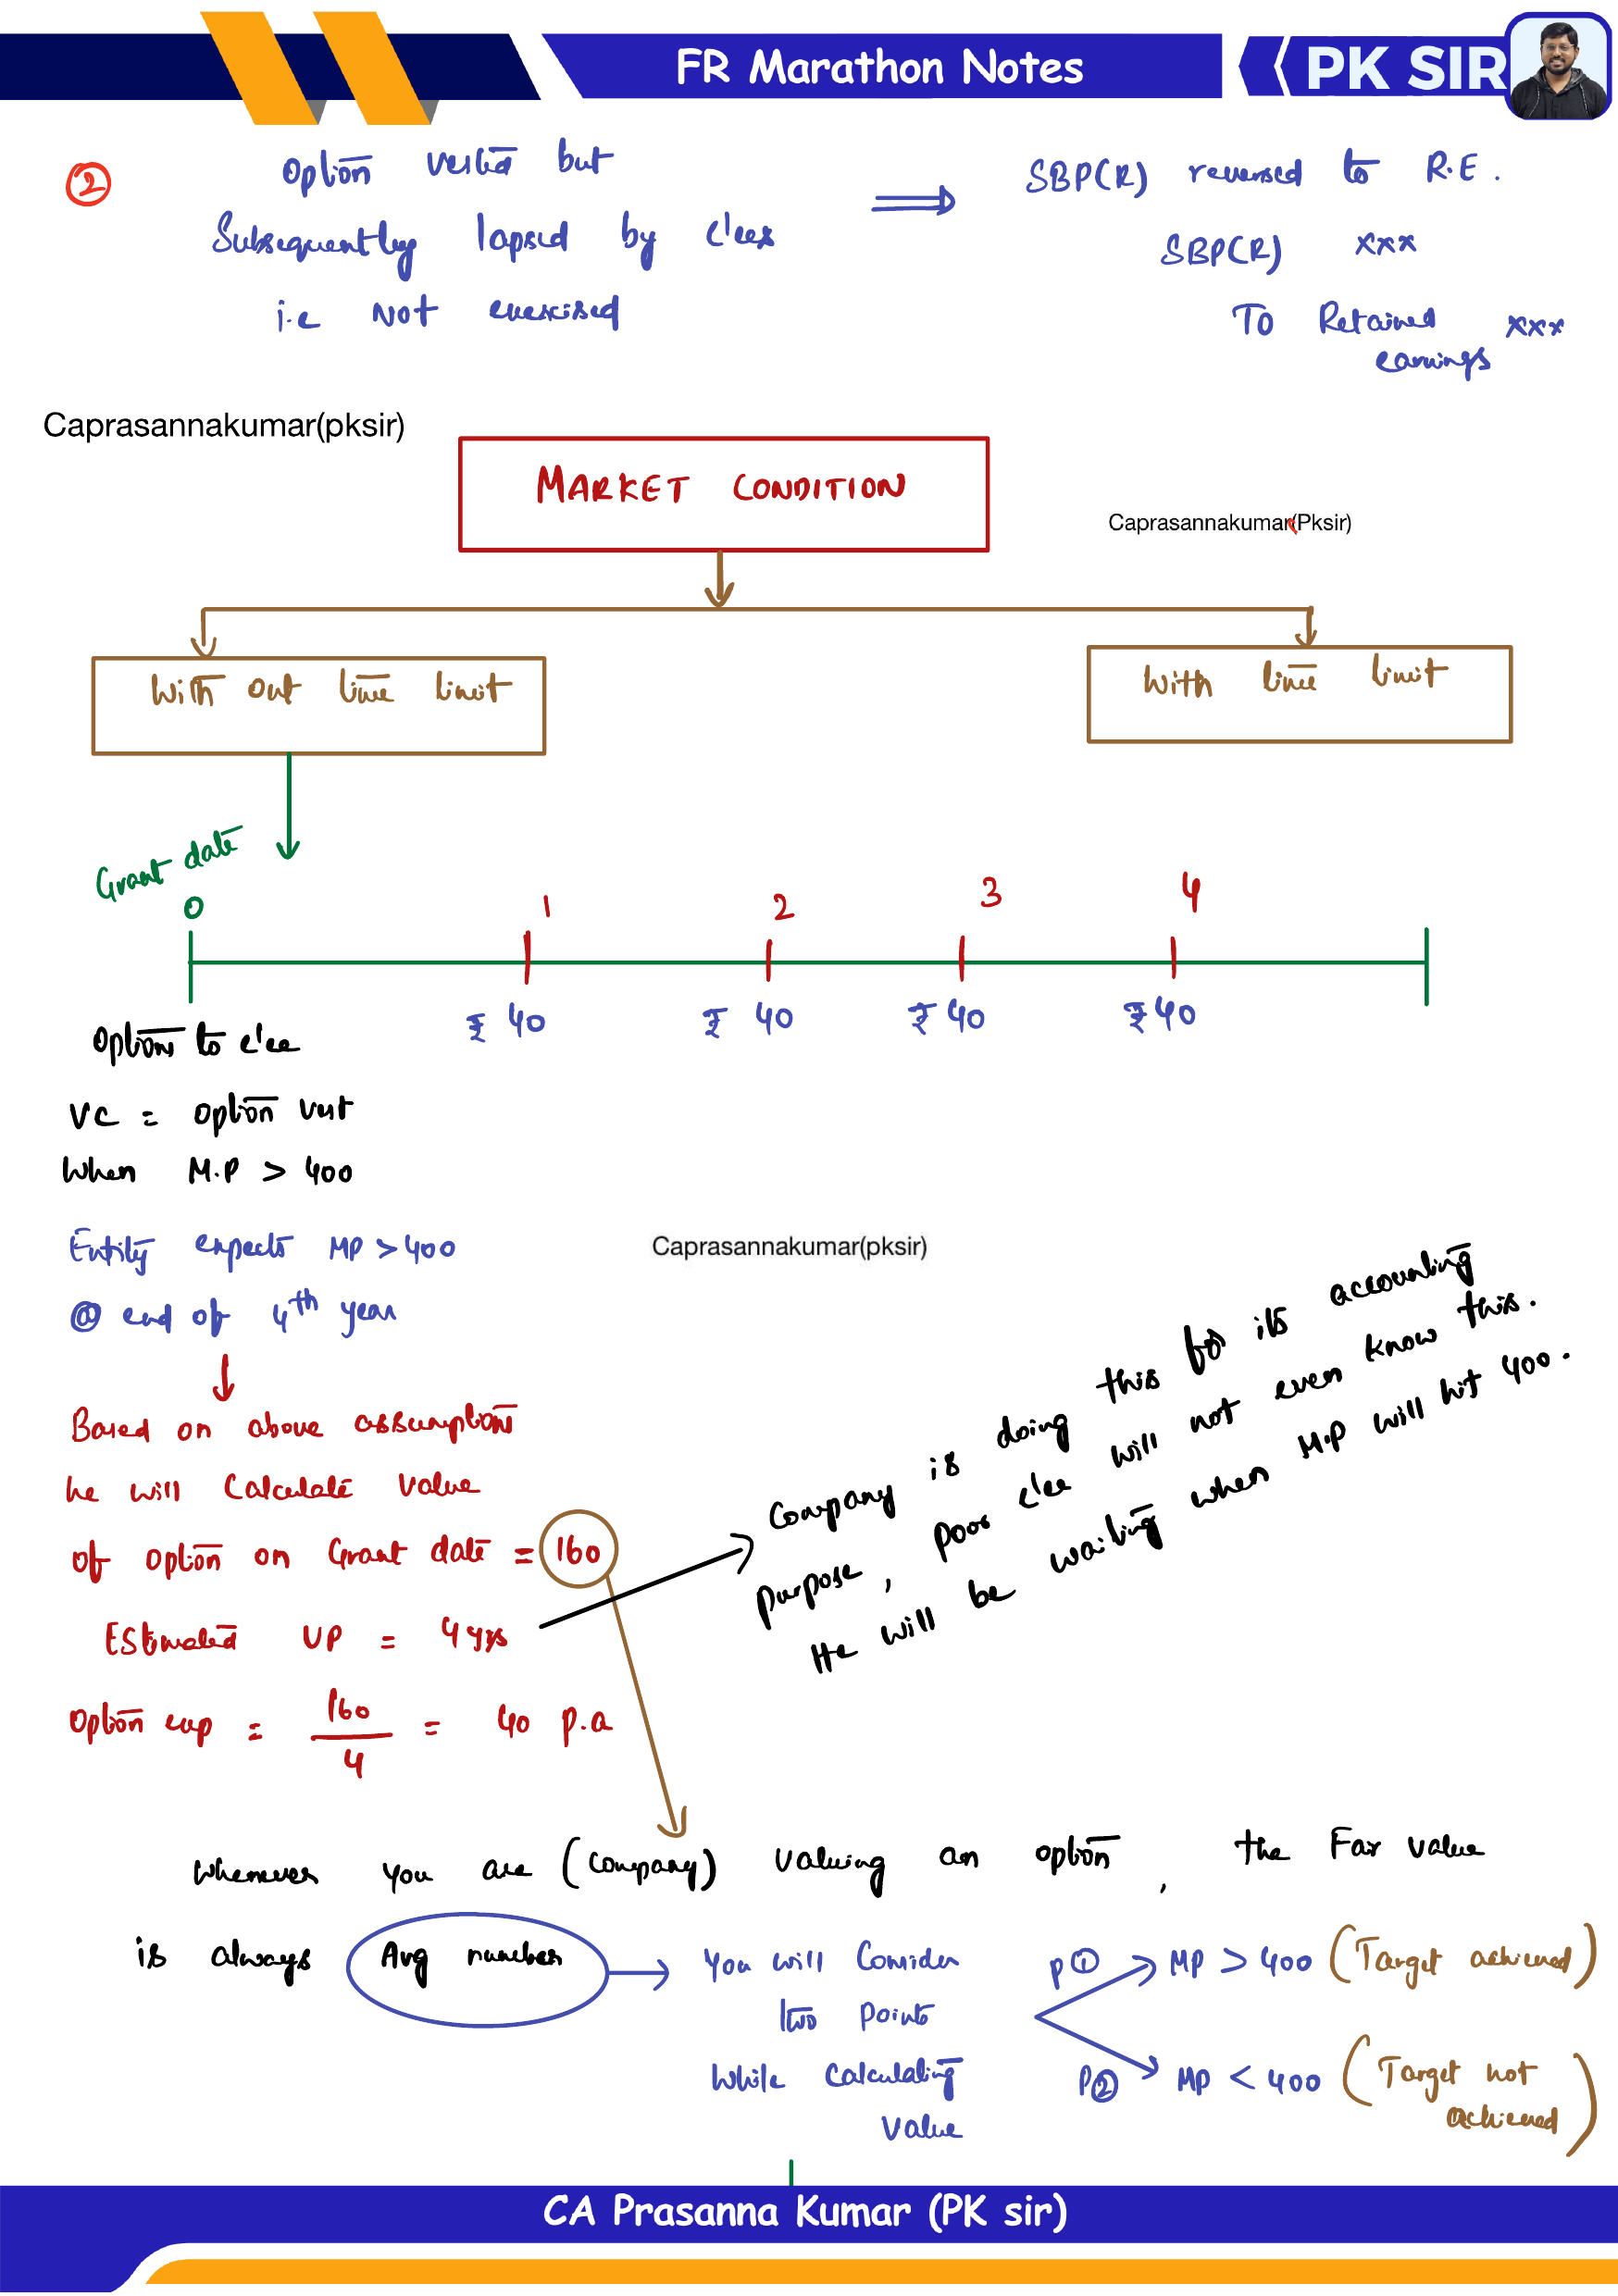 FR Marathon Notes
PK SIR
② Option vested but
Subsequently lapsed by e'ees
i.e Not exercised
⟹ SBP(R) reversed to R.E.
SBP(R) xxx
To Retained xxx
earnings
Caprasannakumar(pksir)
MARKET CONDITION
Caprasannakumar(Pksir)
With out time limit
With time limit
Grant date
0 1 2 3 4
₹ 40 ₹ 40 ₹ 40 ₹ 40
Options to e'ee
VC = option vest
When M.P > 400
Entity expects MP > 400
@ end of 4th year
Caprasannakumar(pksir)
Based on above assumptions
he will Calculate value
of option on Grant date = 160
Estimated VP = 4 yrs
Option exp = 160/4 = 40 p.a
Company is doing this for its accounting
purpose, poor e'ee will not even know this.
He will be waiting when M.P will hit 400.
Whenever you are (company) valuing an option, the Fair value
is always Avg number
You will Consider
two points
While calculating
value
P① MP > 400 (Target achieved)
P② MP < 400 (Target not
achieved)
CA Prasanna Kumar (PK sir)